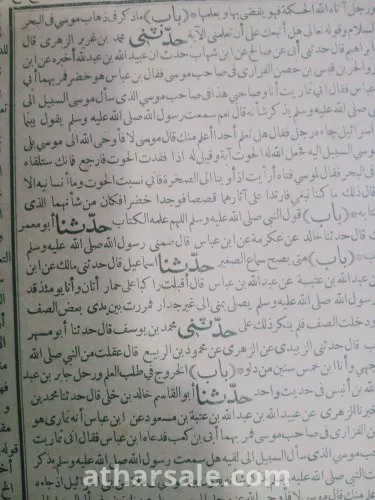 ورجل آتاه الله الحكمة فهو يقضى بها ويعلمها * (باب) ما ذكر فى ذهاب موسى فى البحر
السلام وقوله تعالى هل أتبعك على أن تعلمنى الآية حدثنى محمد بن غرير الزهرى قال
ابراهيم قال حدثنى أبى عن صالح عن ابن شهاب حدث أن عبيد الله بن عبد الله أخبره عن ابن
والحر بن قيس بن حصن الفزارى فى صاحب موسى فقال ابن عباس هو خضر فمر بهما أبى
عباس فقال انى تماريت أنا وصاحبى هذا فى صاحب موسى الذى سأل موسى السبيل الى
صلى الله عليه وسلم يذكر شأنه قال نعم سمعت رسول الله صلى الله عليه وسلم يقول بينما
اسرائيل جاءه رجل فقال هل تعلم أحدا أعلم منك قال موسى لا فأوحى الله الى موسى بلى
موسى السبيل اليه فجعل الله له الحوت آية وقيل له اذا فقدت الحوت فارجع فانك ستلقاه
فى البحر فقال لموسى فتاه أرأيت اذ أوينا الى الصخرة فانى نسيت الحوت وما أنسانيه الا
قال ذلك ما كنا نبغى فارتدا على آثارهما قصصا فوجدا خضرا فكان من شأنهما الذى
كتابه * (باب) قول النبى صلى الله عليه وسلم اللهم علمه الكتاب حدثنا أبو معمر
قال حدثنا خالد عن عكرمة عن ابن عباس قال ضمنى رسول الله صلى الله عليه وسلم
* (باب) متى يصح سماع الصغير حدثنا اسماعيل قال حدثنى مالك عن ابن
عبد الله بن عتبة عن عبد الله بن عباس قال أقبلت راكبا على حمار أتان وأنا يومئذ قد
رسول الله صلى الله عليه وسلم يصلى بمنى الى غير جدار فمررت بين يدى بعض الصف
ودخلت الصف فلم ينكر ذلك على حدثنى محمد بن يوسف قال حدثنا أبو مسهر
قال حدثنى الزبيدى عن الزهرى عن محمود بن الربيع قال عقلت من النبى صلى الله
وجهى وأنا ابن خمس سنين من دلو * (باب) الخروج فى طلب العلم ورحل جابر بن عبد
الله بن أنيس فى حديث واحد حدثنا أبو القاسم خالد بن خلى قال حدثنا محمد بن
أخبرنا الزهرى عن عبيد الله بن عبد الله بن عتبة بن مسعود عن ابن عباس أنه تمارى هو
حصن الفزارى فى صاحب موسى فمر بهما أبى بن كعب فدعاه ابن عباس فقال انى تماريت
موسى الذى سأل السبيل الى لقيه هل سمعت رسول الله صلى الله عليه وسلم يذكر
atharsale.com